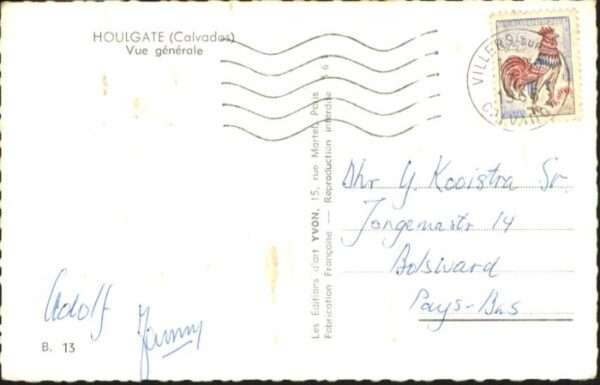 HOULGATE (Calvados)
Vue générale
VILLERS-sur
CALVADOS
Les Editions d'art YVON, 15, rue Martel, Paris
Fabrication Française — Reproduction interdite
Dhr Y. Kooistra Sr.
Jongemastr 14
Bolsward
Pays-Bas
Adolf
Jenny
B. 13